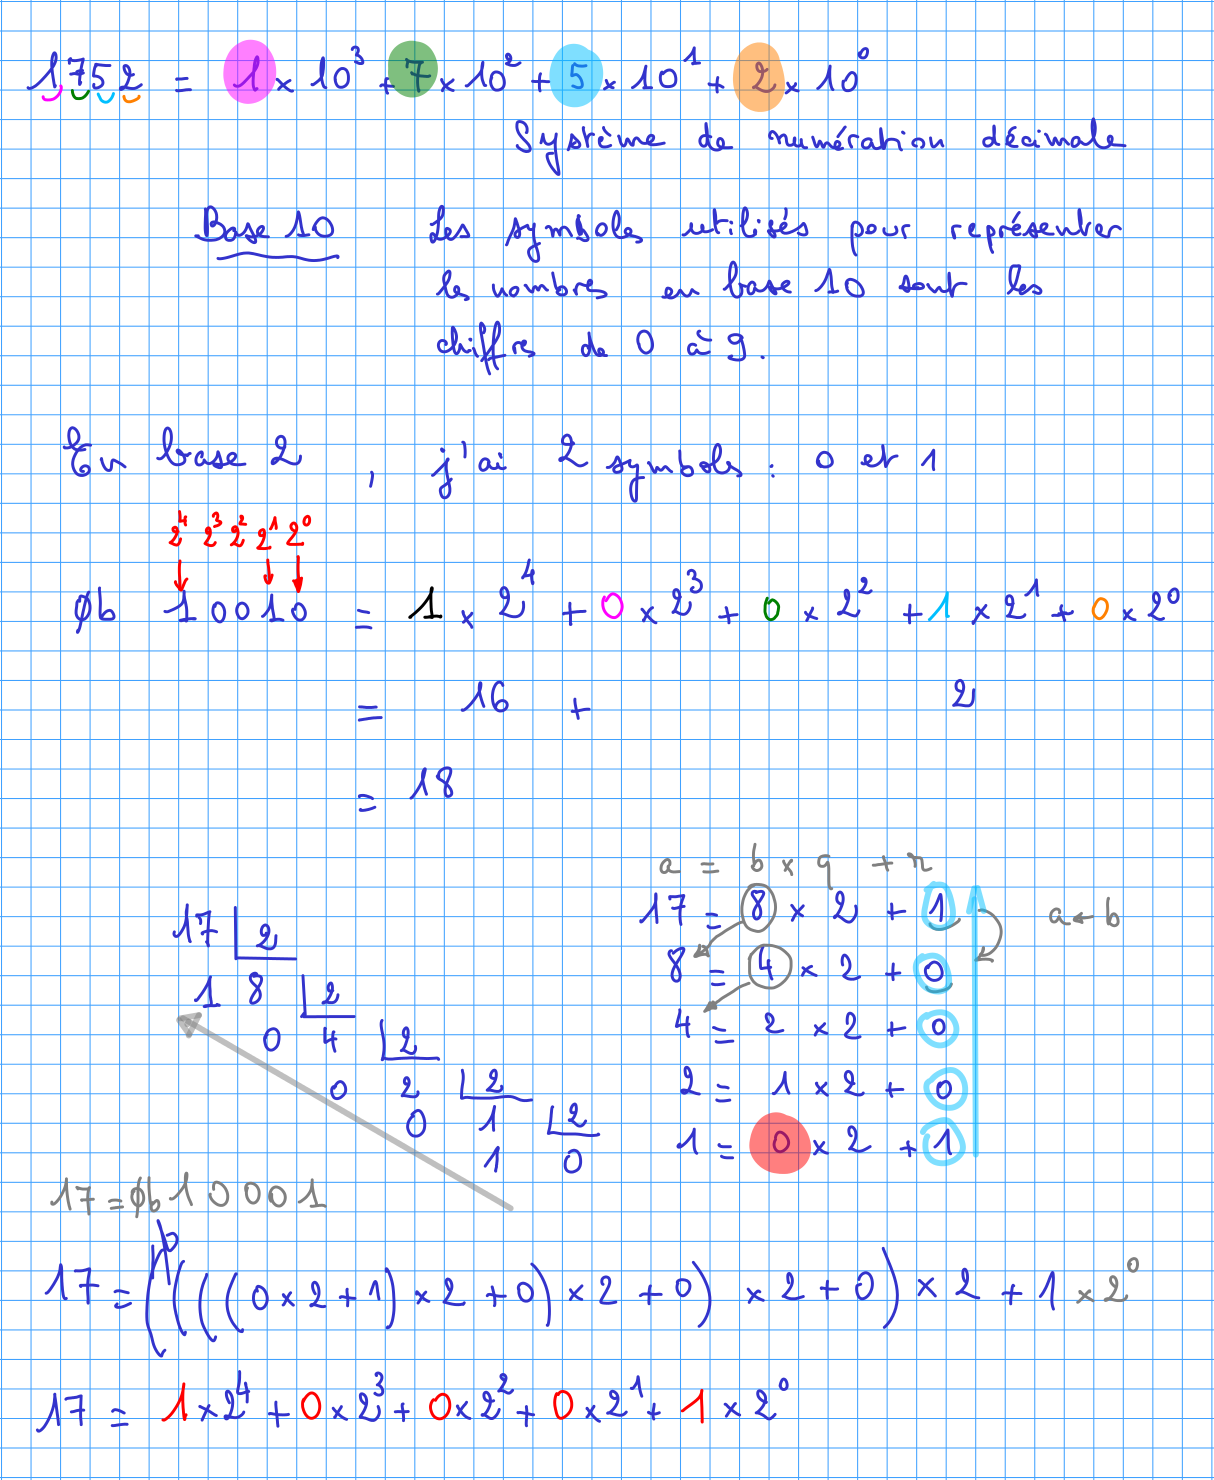 1752 = 1 × 10³ + 7 × 10² + 5 × 10¹ + 2 × 10⁰
Système de numération décimale
Base 10 Les symboles utilisés pour représenter
les nombres en base 10 sont les
chiffres de 0 à 9.
En base 2, j'ai 2 symboles : 0 et 1
2⁴ 2³ 2² 2¹ 2⁰
0b 10010 = 1 × 2⁴ + 0 × 2³ + 0 × 2² + 1 × 2¹ + 0 × 2⁰
= 16 + 2
= 18
17 2
1 8 2
0 4 2
0 2 2
0 1 2
1 0
a = b × q + r
17 = 8 × 2 + 1
a ← b
8 = 4 × 2 + 0
4 = 2 × 2 + 0
2 = 1 × 2 + 0
1 = 0 × 2 + 1
17 = 0b10001
17 = ((((0 × 2 + 1) × 2 + 0) × 2 + 0) × 2 + 0) × 2 + 1 × 2⁰
17 = 1 × 2⁴ + 0 × 2³ + 0 × 2² + 0 × 2¹ + 1 × 2⁰